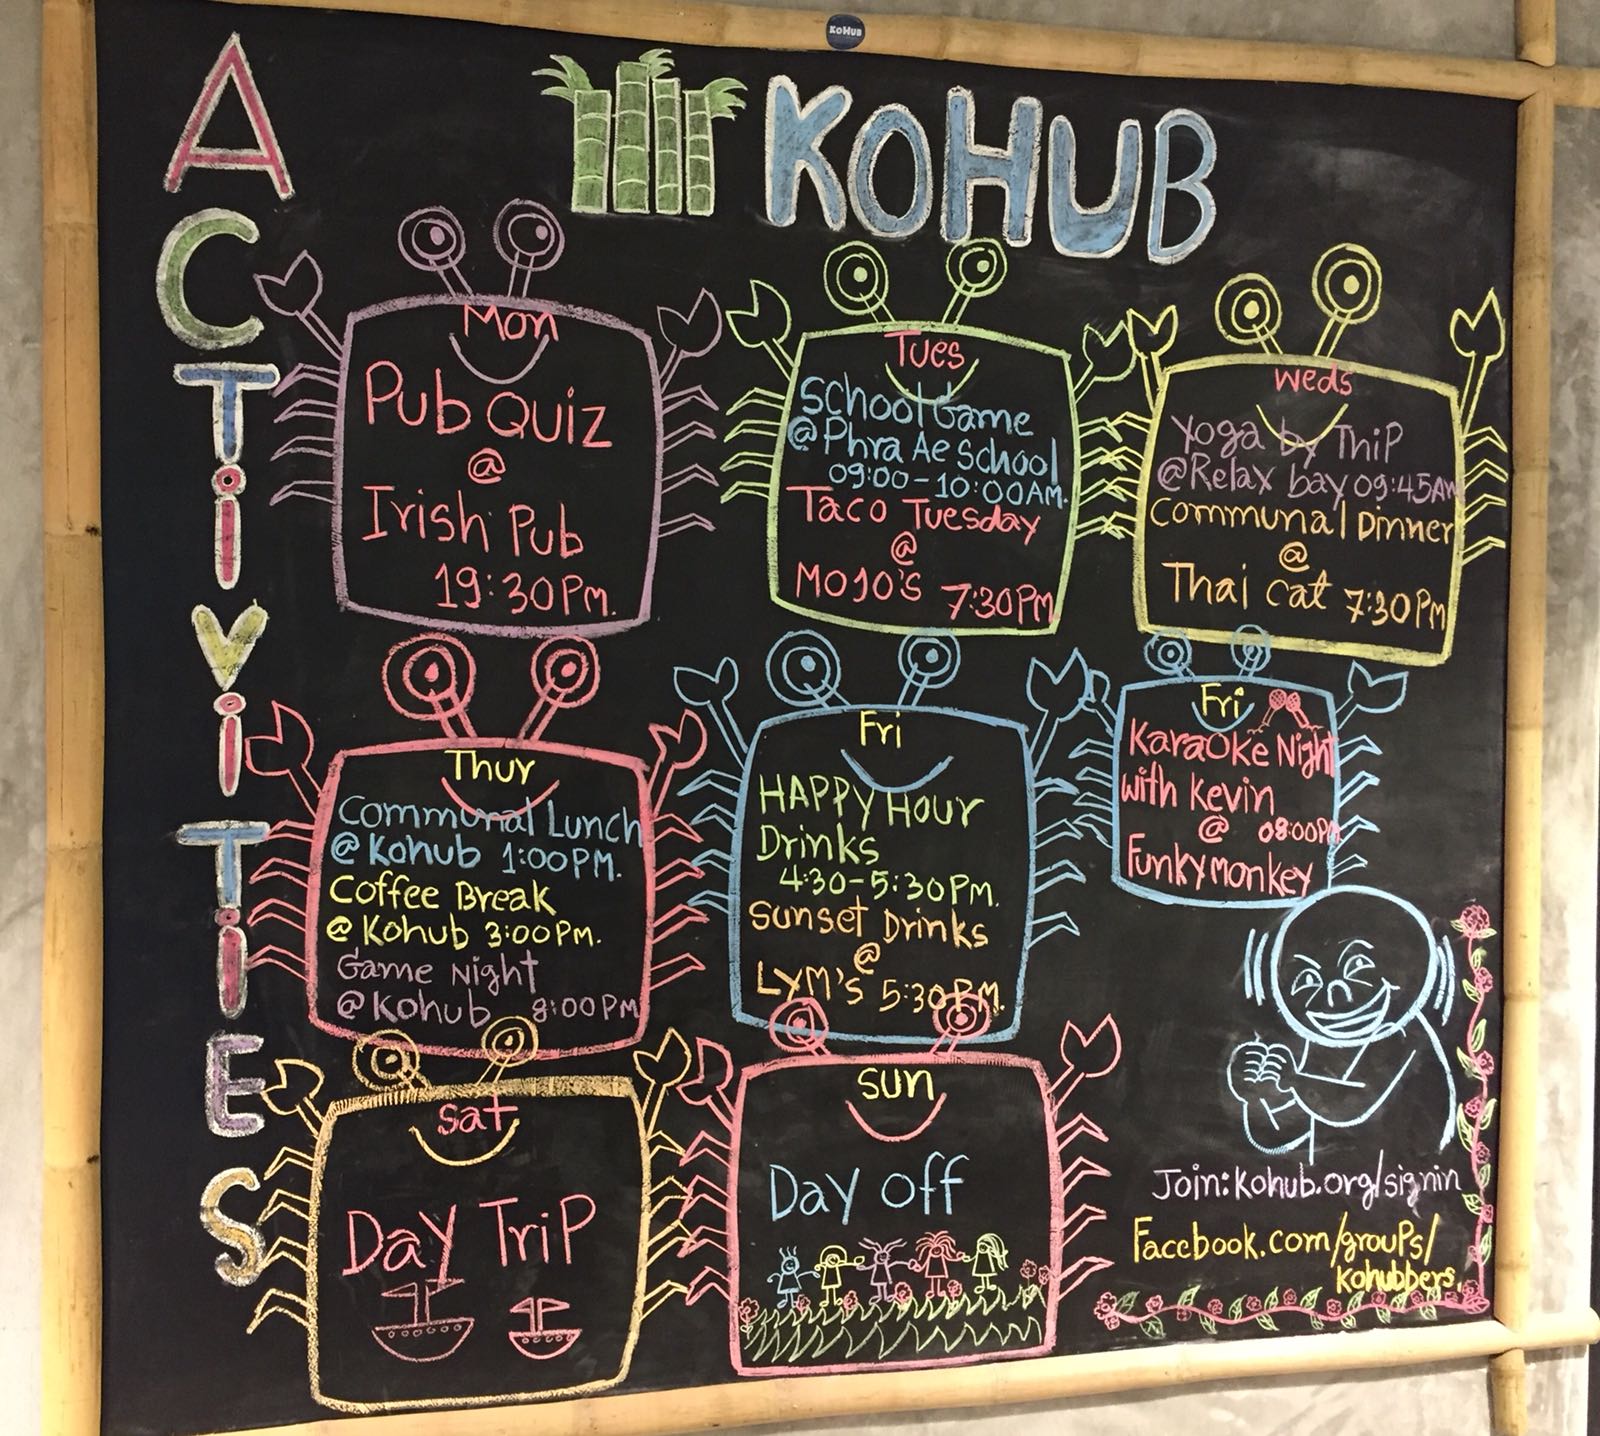 KOHUB
ACTIVITIES
KOHUB
Mon
Pub Quiz
@
Irish Pub
19:30PM.
Tues
School Game
@Phra Ae School
09:00-10:00AM.
Taco Tuesday
@
MOJO'S 7:30PM
Weds
Yoga by ThiP
@Relax bay 09:45AM
Communal Dinner
@
Thai Cat 7:30PM
Thur
Communal Lunch
@Kohub 1:00PM.
Coffee Break
@Kohub 3:00PM.
Game Night
@Kohub 8:00PM
Fri
HAPPY HOUR
Drinks
4:30-5:30PM.
Sunset Drinks
@
LYM's 5:30PM.
Fri
Karaoke Night
with Kevin
@ 08:00PM
Funky monkey
Sat
Day TriP
Sun
Day off
Join: Kohub.org/signin
Facebook.com/groups/
Kohubbers.